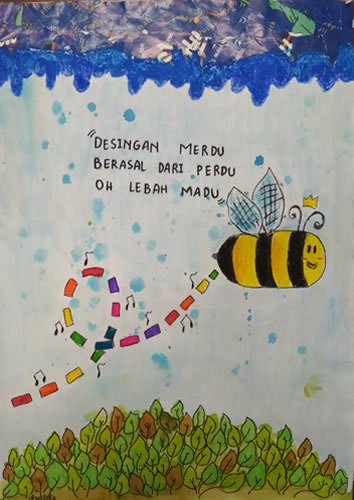 "DESINGAN MERDU
BERASAL DARI PERDU
OH LEBAH MADU